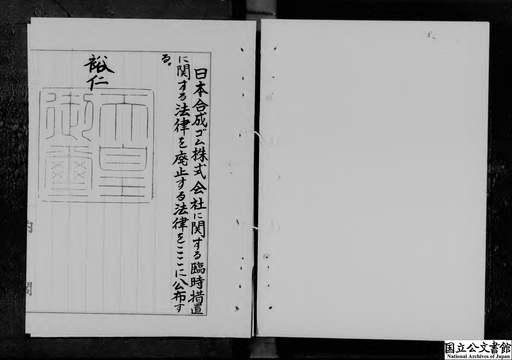 日本合成ゴム株式会社に関する臨時措置
に関する法律を廃止する法律をここに公布す
る。
裕仁
天皇
御璽
内
閣
国立公文書館
National Archives of Japan